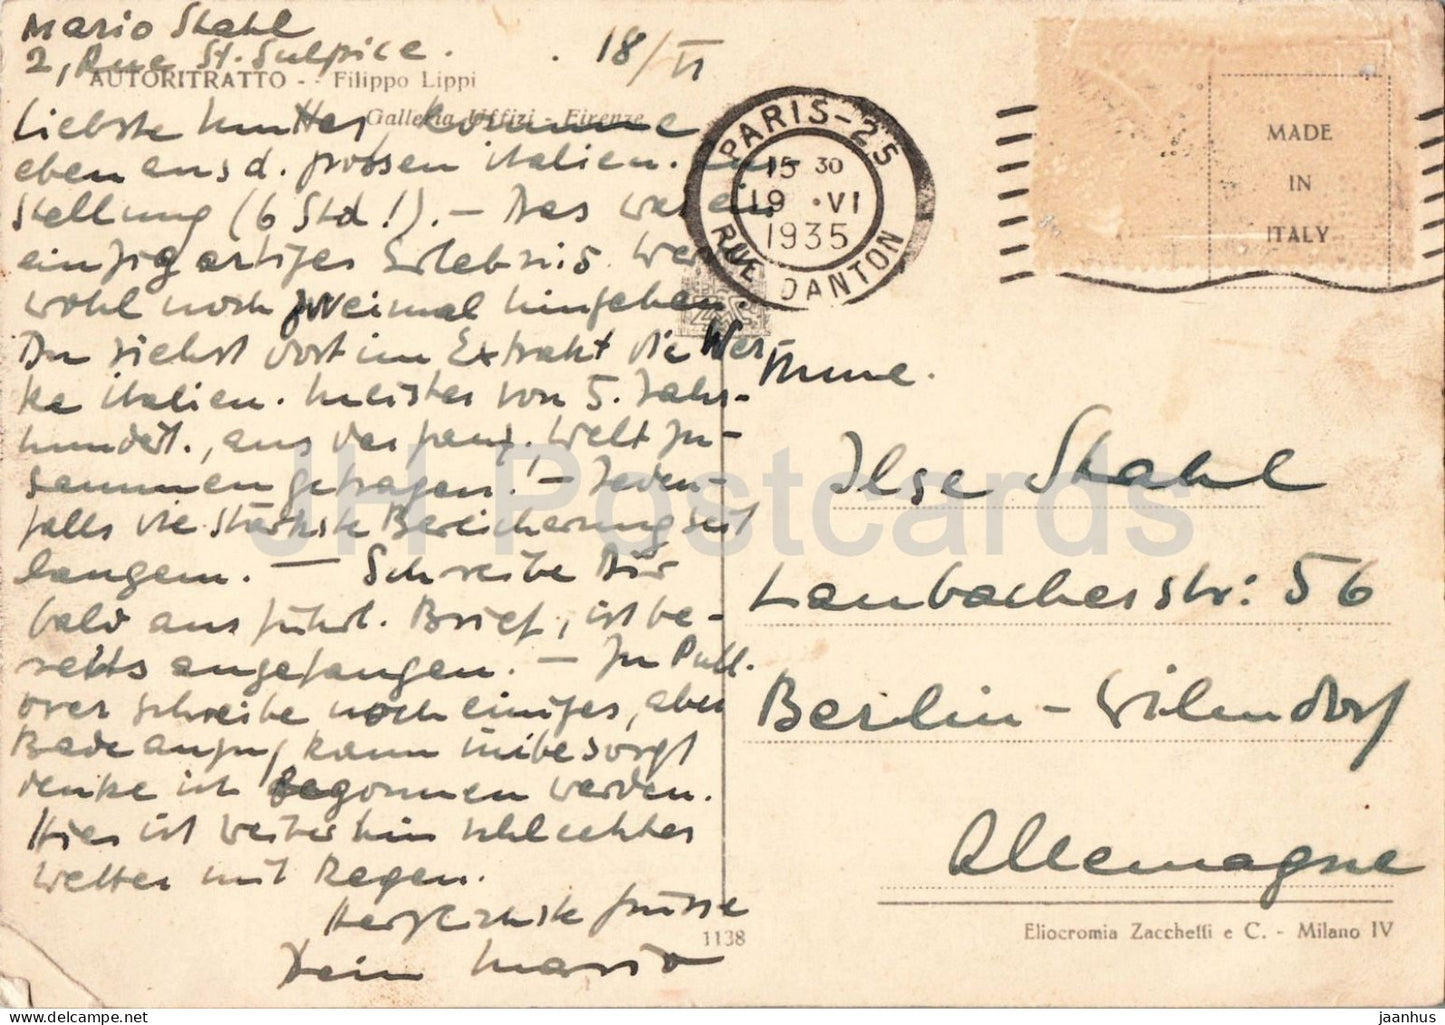 Mario Stahl
2, Rue St. Sulpice.
18/VI
AUTORITRATTO - - Filippo Lippi
Galleria Uffizi - Firenze
Liebste Mutter, komme
eben aus d. grossen italien. Aus-
stellung (6 Std!). — Das war ein
einzigartiges Erlebnis. Werde
wohl noch zweimal hingehen.
Du siehst dort im Extrakt die Wer-
ke italien. Meister von 5. Jahr-
hundert., aus der ganz. Welt zu-
sammengetragen! — Jeden-
falls die stärkste Bereicherung seit
langem. — Schreibe Dir
bald ausführl. Brief, ist be-
reits angefangen. — Zu Pull-
over schreibe noch einiges, aber
Badeanzug, kann
denke ich begonnen werden.
Hier ist weiterhin schlechtes
Wetter mit Regen.
Herzlichste Grüsse
Dein Mario
PARIS-25
15 30
19 · VI
1935
RUE DANTON
MADE
IN
ITALY
Mme.
Ilse Stahl
Laubacherstr: 56
Berlin-Wilmdorf
Allemagne
1138
Eliocromia Zacchetti e C. - Milano IV
JH Postcards
www.delcampe.net
jaanhus